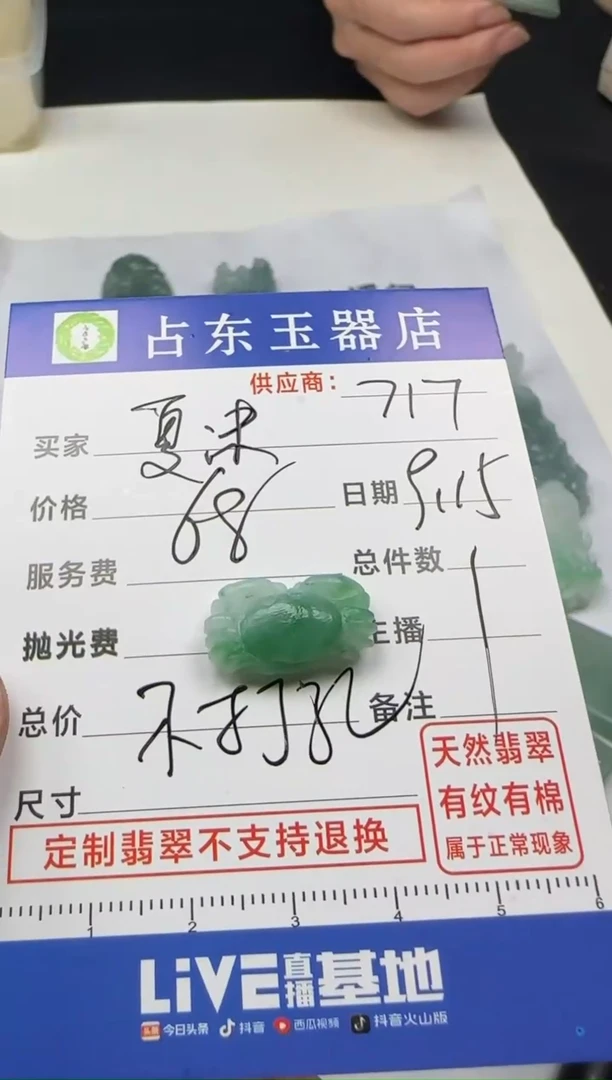 占东玉器店
供应商： 717
买家 夏沫
价格 68 日期 9.15
服务费 总件数 1
抛光费 主播
总价 不打孔 备注
尺寸
天然翡翠
有纹有棉
属于正常现象
定制翡翠不支持退换
1 2 3 4 5 6
LiVE直播基地
今日头条 抖音 西瓜视频 抖音火山版